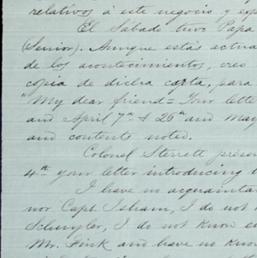 relativos á este negocio y
El Sábado tuvo Papa
(Senior). Aunque estás
de los acontecimientos, creo
copia de dicha carta, para
"My dear friend = Your letter
and April 7th & 26th and May
and contents noted.
Colonel Sterrett
4th your letter introducing
I have no
nor Capt. Isham, I do not
I do not know
Mr. Fink and have no know